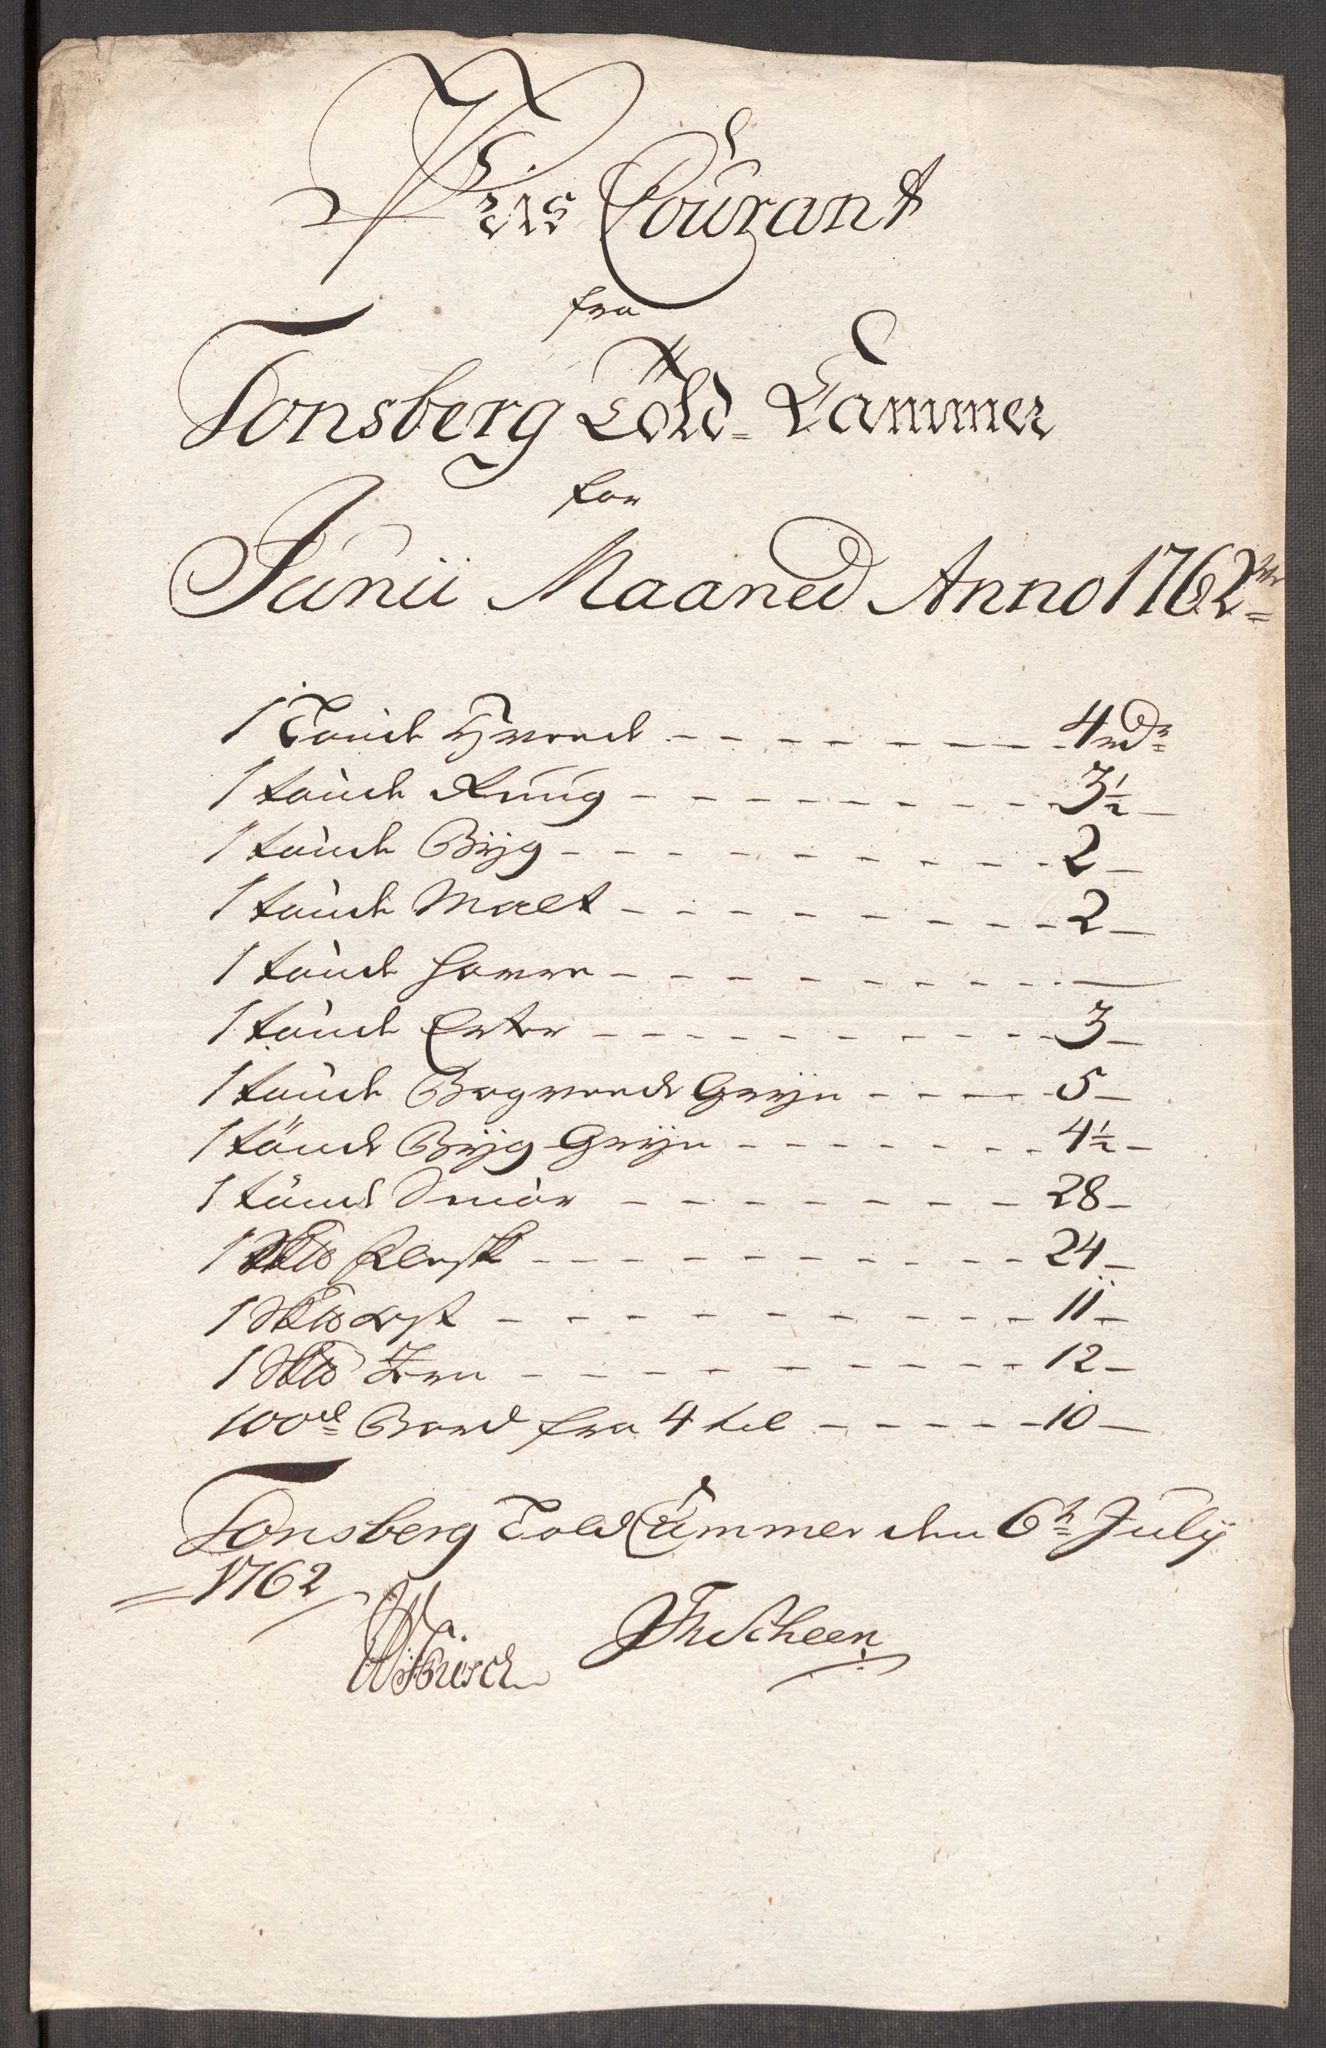 Priis Courant
fra
Tonsberg Told-Cammer
for
Junii Maaned Anno 1762
1 Tønde Hvede - - - - - - - 4 rd
1 tønde Rug - - - - - - - - 3½ -
1 tønde Byg - - - - - - - - - 2 -
1 tønde Malt - - - - - - - - 2 -
1 tønde Havre - - - - - - - - —
1 tønde Erter - - - - - - - - - 3 -
1 tønde Bogvede Gryn - - - - 5 -
1 tønde Byg Gryn - - - - - - 4½ -
1 tønde Smör - - - - - - - - 28 -
1 Flesk - - - - - - - - - 24 -
1 Ost - - - - - - - - - 11 -
1 - - - - - - - - - 12 -
100de Bord fra 4 til - - - - - 10 -
Tonsberg Told Cammer den 6te July
1762
Scheen